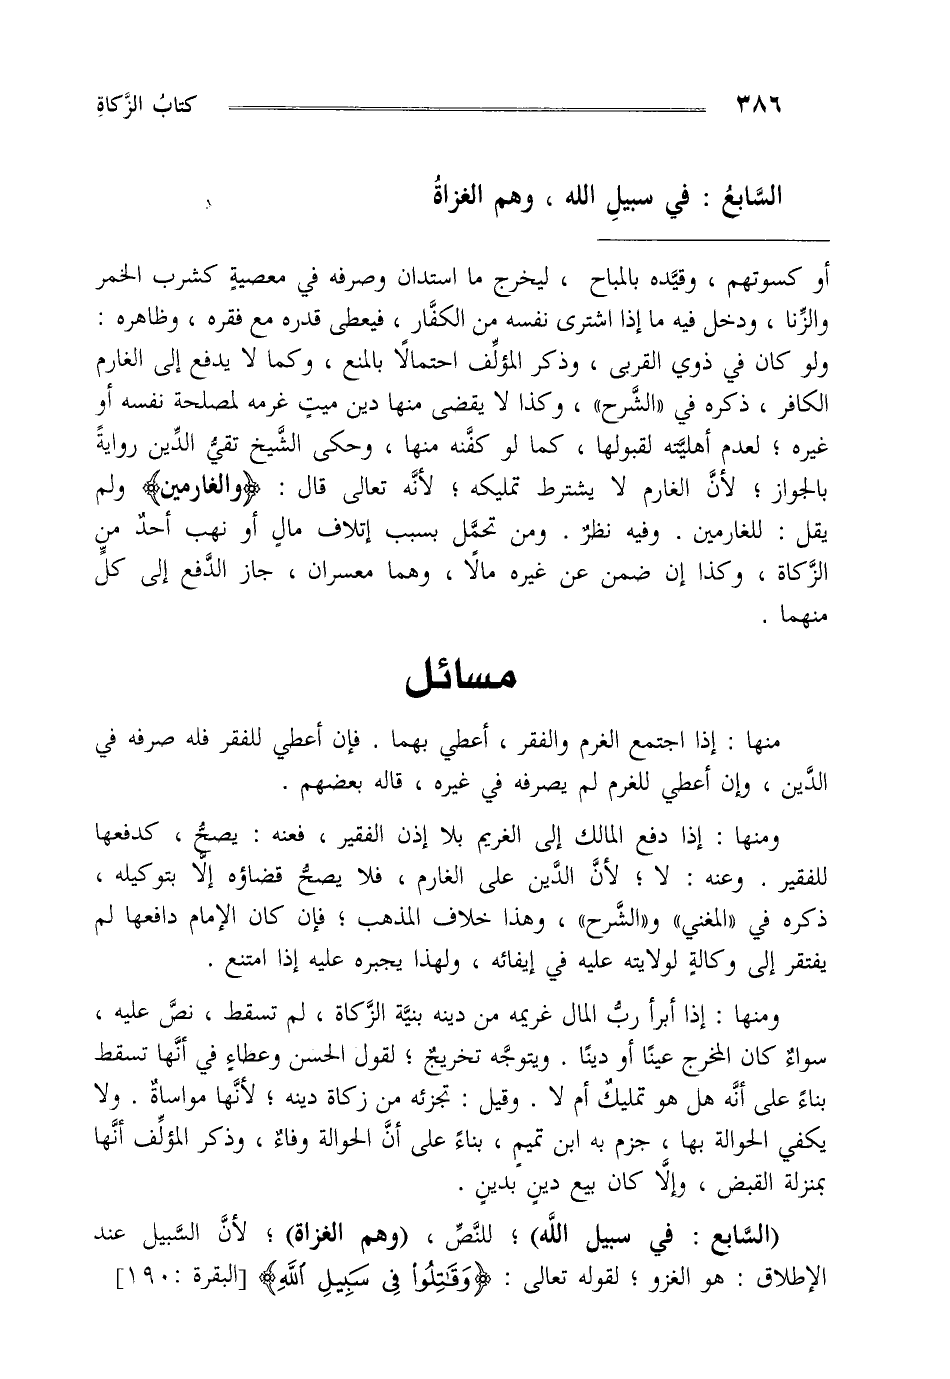 ٣٨٦ كتابُ الزَّكاةِ
السَّابعُ : في سبيلِ الله ، وهم الغزاةُ
أو كسوتهم ، وقيَّده بالمباح ، ليخرج ما استدان وصرفه في معصيةٍ كشرب الخمر
والزِّنا ، ودخل فيه ما إذا اشترى نفسه من الكفَّار ، فيعطى قدره مع فقره ، وظاهره :
ولو كان في ذوي القربى ، وذكر المؤلِّف احتمالًا بالمنع ، وكما لا يدفع إلى الغارم
الكافر ، ذكره في «الشَّرح» ، وكذا لا يقضى منها دين ميتٍ غرمه لمصلحة نفسه أو
غيره ؛ لعدم أهليَّته لقبولها ، كما لو كفَّنه منها ، وحكى الشَّيخ تقيُّ الدِّين روايةً
بالجواز ؛ لأنَّ الغارم لا يشترط تمليكه ؛ لأنَّه تعالى قال : ﴿والغارمين﴾ ولم
يقل : للغارمين . وفيه نظرٌ . ومن تحمَّل بسبب إتلاف مالٍ أو نهب أحدٌ من
الزَّكاة ، وكذا إن ضمن عن غيره مالًا ، وهما معسران ، جاز الدَّفع إلى كلٍّ
منهما .
مسائل
منها : إذا اجتمع الغرم والفقر ، أعطي بهما . فإن أعطي للفقر فله صرفه في
الدَّين ، وإن أعطي للغرم لم يصرفه في غيره ، قاله بعضهم .
ومنها : إذا دفع المالك إلى الغريم بلا إذن الفقير ، فعنه : يصحُّ ، كدفعها
للفقير . وعنه : لا ؛ لأنَّ الدَّين على الغارم ، فلا يصحُّ قضاؤه إلَّا بتوكيله ،
ذكره في «المغني» و«الشَّرح» ، وهذا خلاف المذهب ؛ فإن كان الإمام دافعها لم
يفتقر إلى وكالةٍ لولايته عليه في إيفائه ، ولهذا يجبره عليه إذا امتنع .
ومنها : إذا أبرأ ربُّ المال غريمه من دينه بنيَّة الزَّكاة ، لم تسقط ، نصَّ عليه ،
سواءٌ كان المخرج عينًا أو دينًا . ويتوجَّه تخريجٌ ؛ لقول الحسن وعطاءٍ في أنَّها تسقط
بناءً على أنَّه هل هو تمليكٌ أم لا . وقيل : تجزئه من زكاة دينه ؛ لأنَّها مواساةٌ . ولا
يكفي الحوالة بها ، جزم به ابن تميمٍ ، بناءً على أنَّ الحوالة وفاءٌ ، وذكر المؤلِّف أنَّها
بمنزلة القبض ، وإلَّا كان بيع دينٍ بدينٍ .
(السَّابع : في سبيل اللَّه) ؛ للنَّصِّ ، (وهم الغزاة) ؛ لأنَّ السَّبيل عند
الإطلاق : هو الغزو ؛ لقوله تعالى : ﴿وَقَٰتِلُواْ فِي سَبِيلِ ٱللَّهِ﴾ [البقرة : ١٩٠]